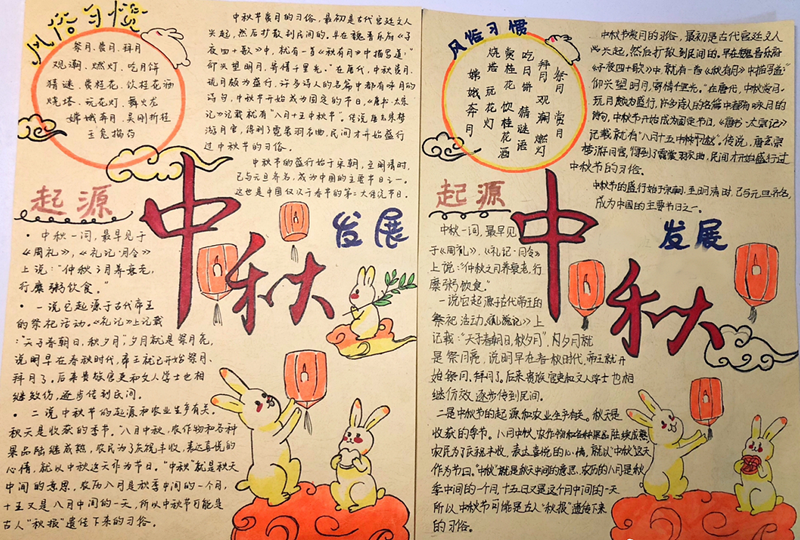 风俗习惯
祭月、赏月、拜月
观潮、燃灯、吃月饼
猜谜、赏桂花、饮桂花酒
烧塔、玩花灯、舞火龙
嫦娥奔月、吴刚折桂
玉兔捣药
中秋节赏月的习俗，最初是古代宫廷文人
兴起，然后打散到民间的。早在魏晋乐府《子
夜四十歌》中，就有一首《秋有月》中描写道：“
仰头望明月，寄情千里光。”在唐代，中秋赏月、
玩月颇为盛行，许多诗人的名篇中都有咏月的
诗句，中秋节开始成为固定的节日，《唐书·太宗
记》记载就有“八月十五中秋节”。传说唐玄宗梦
游月宫，得到了霓裳羽衣曲，民间才开始盛行
过中秋节的习俗。
中秋节的盛行始于宋朝，至明清时，
已与元旦齐名，成为中国的主要节日之一。
这也是中国仅次于春节的第二大传统节日。
起源
中秋
发展
·中秋一词，最早见于
《周礼》，《礼记·月令》
上说：“仲秋之月养衰老，
行糜粥饮食。”
·一说它起源于古代帝王
的祭祀活动。《礼记》上记载
“天子春朝日，秋夕月”，夕月就是祭月亮，
说明早在春秋时代，帝王就已开始祭月、
拜月了。后来贵族官吏和文人学士也相
继效仿，逐步传到民间。
·二说中秋节的起源和农业生产有关。
秋天是收获的季节。“八月中秋，农作物和各种
果品陆续成熟，农民为了庆祝丰收，表达喜悦的
心情，就以中秋这天作为节日。“中秋”就是秋天
中间的意思，农历八月是秋季中间的一个月，
十五又是八月中间的一天，所以中秋节可能是
古人“秋报”遗传下来的习俗。
风俗习惯
祭月 赏月
拜月 观潮 燃灯
吃月饼 猜谜语
赏桂花 饮桂花酒
烧塔 玩花灯
嫦娥奔月
中秋节赏月的习俗，最初是古代宫廷文人
兴起，然后打散到民间的。早在魏晋乐府
《子夜四十歌》中，就有一首《秋有月》中描写道：“
仰头望明月，寄情千里光。”在唐代，中秋赏月、
玩月颇为盛行，许多诗人的名篇中都有咏月的
诗句，中秋节开始成为固定节日，《唐书·太宗记》
记载就有“八月十五中秋节起”。传说，唐玄宗
梦游月宫，得到了霓裳羽衣曲，民间才开始盛行过
中秋节的习俗。
中秋节的盛行始于宋朝，至明清时，已与元旦齐名
成为中国的主要节日之一。
起源
中秋
发展
中秋一词，最早见
于《周礼》，《礼记·月令》
上说：“仲秋之月养衰老，行
糜粥饮食。”
一说它起源于古代帝王的
祭祀活动，《礼记》上
记载：“天子春朝日，秋夕月”，夕月就
是祭月亮，说明早在春秋时代，帝王就开
始祭月、拜月了。后来贵族官吏和文人学士也相
继仿效，逐步传到民间。
二是中秋节的起源和农业生产有关。秋天是
收获的季节。八月中秋，农作物和各种果品陆续成熟
农民为了庆祝丰收，表达喜悦的心情，就以“中秋”这天
作为节日。“中秋”就是秋天中间的意思，农历的八月是秋
季中间的一个月，十五日又是这个月中间的一天
所以中秋节可能是古人“秋报”遗传下来
的习俗。